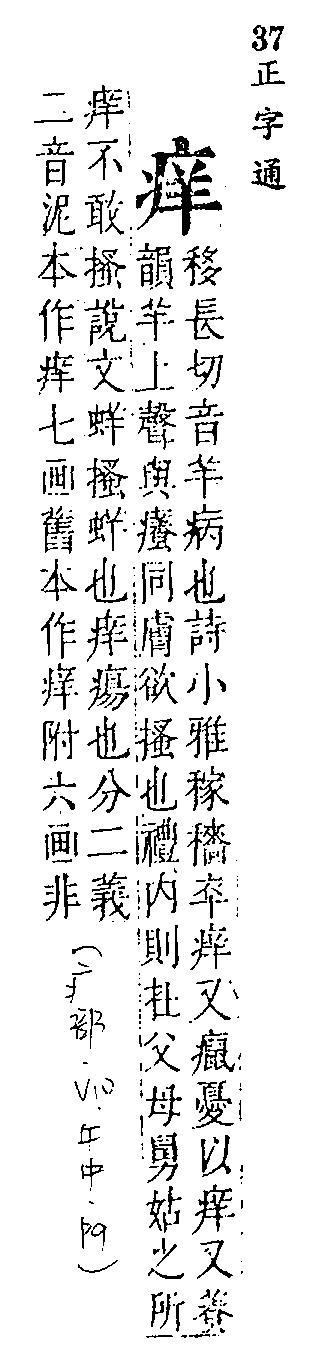 37正字通
痒
移長切音羊病也詩小雅稼穡卒痒又癙憂以痒又養
韻羊上聲與癢同膚欲搔也禮內則在父母舅姑之所
痒不敢搔說文蛘搔蛘也痒瘍也分二義
二音泥本作痒七画舊本作痒附六画非
(疒部.V10.午中.)